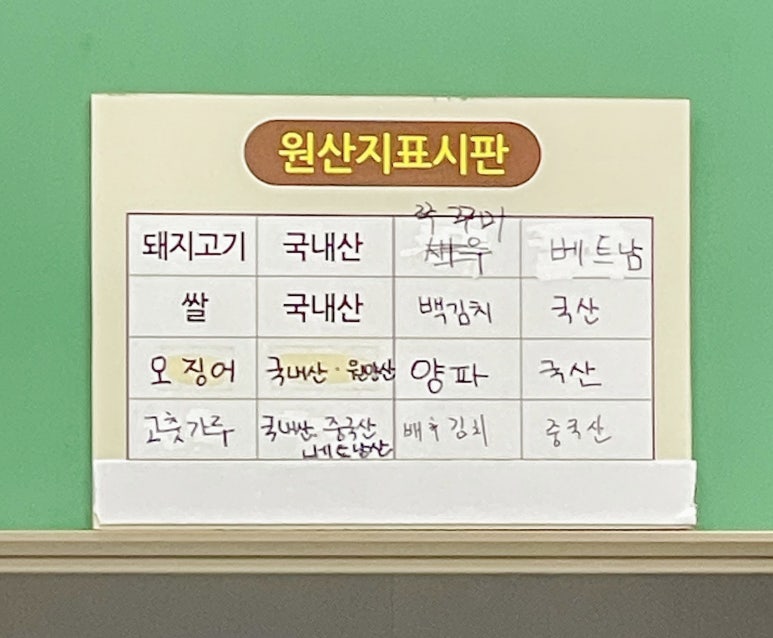 원산지표시판
쭈꾸미
돼지고기 국내산 새우 베트남
쌀 국내산 백김치 국산
오징어 국내산·원양산 양파 국산
고춧가루 국내산, 중국산 배추김치 중국산
베트남산